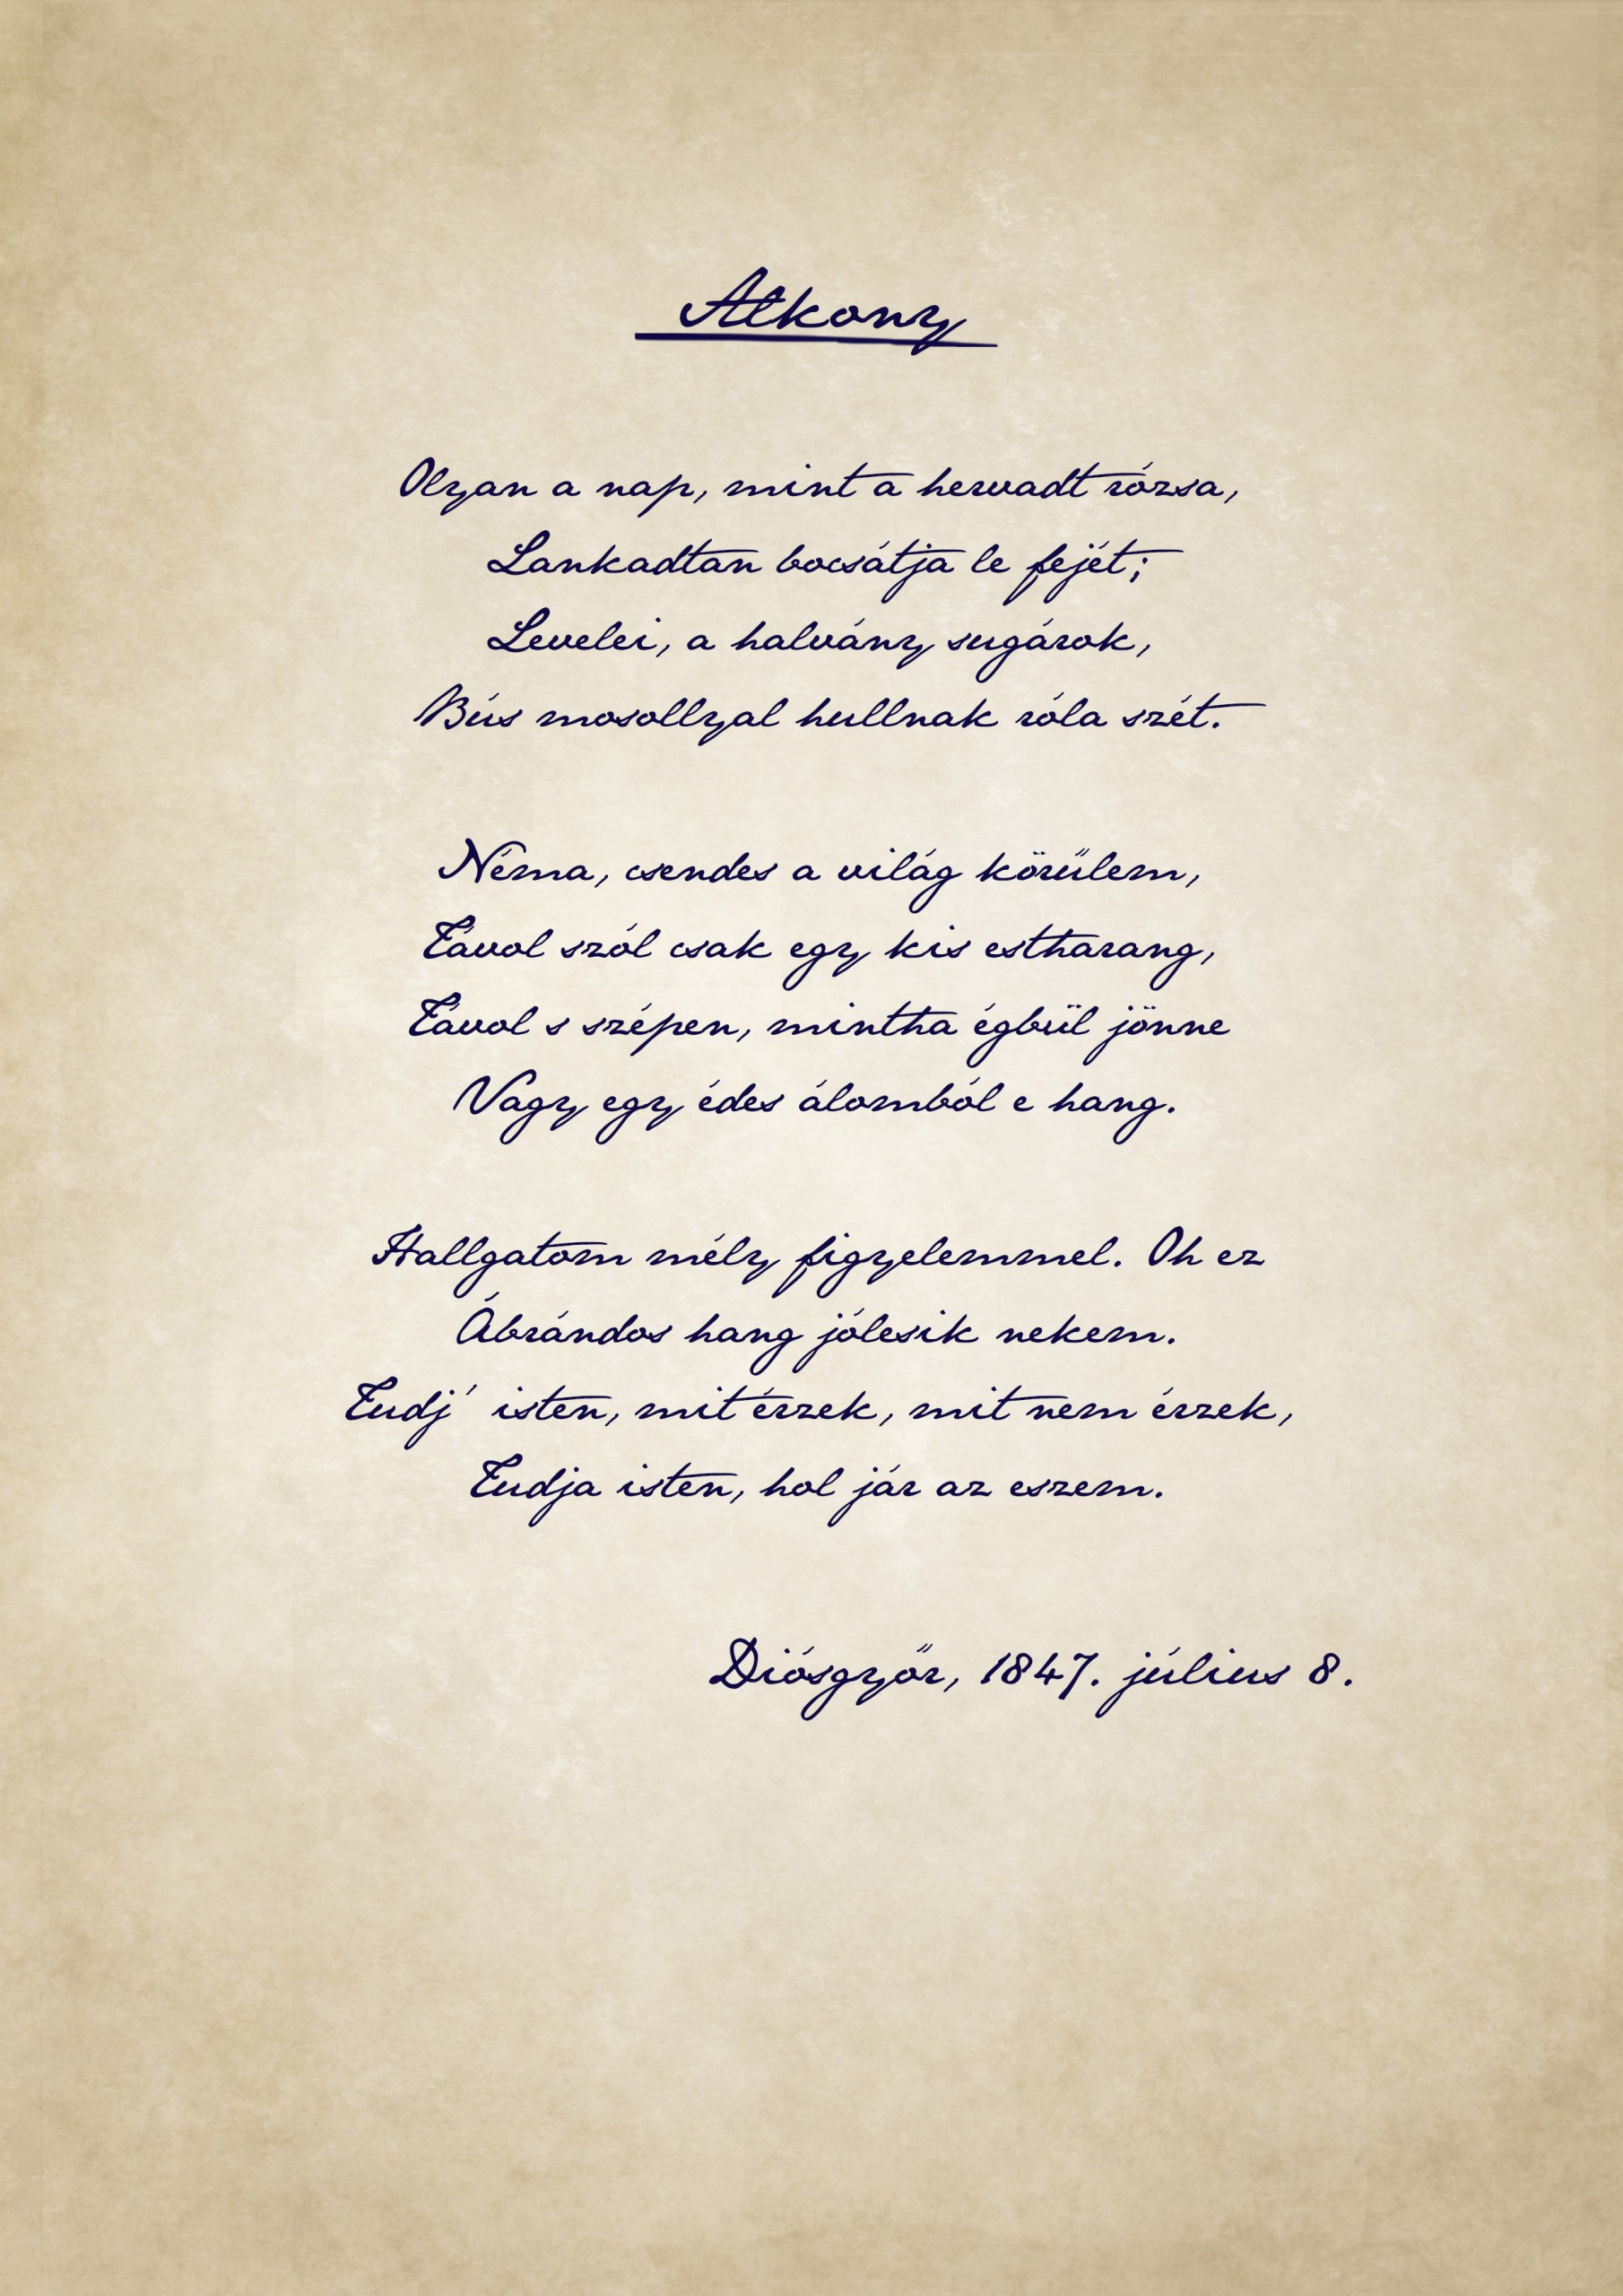 Alkony
Olyan a nap, mint a hervadt rózsa,
Lankadtan bocsátja le fejét;
Levelei, a halvány sugárok,
Bús mosollyal hullnak róla szét.
Néma, csendes a világ körűlem,
Távol szól csak egy kis estharang,
Távol s szépen, mintha égbül jönne
Vagy egy édes álomból e hang.
Hallgatom mély figyelemmel. Oh ez
Ábrándos hang jólesik nekem.
Tudj' isten, mit érzek, mit nem érzek,
Tudja isten, hol jár az eszem.
Diósgyőr, 1847. július 8.